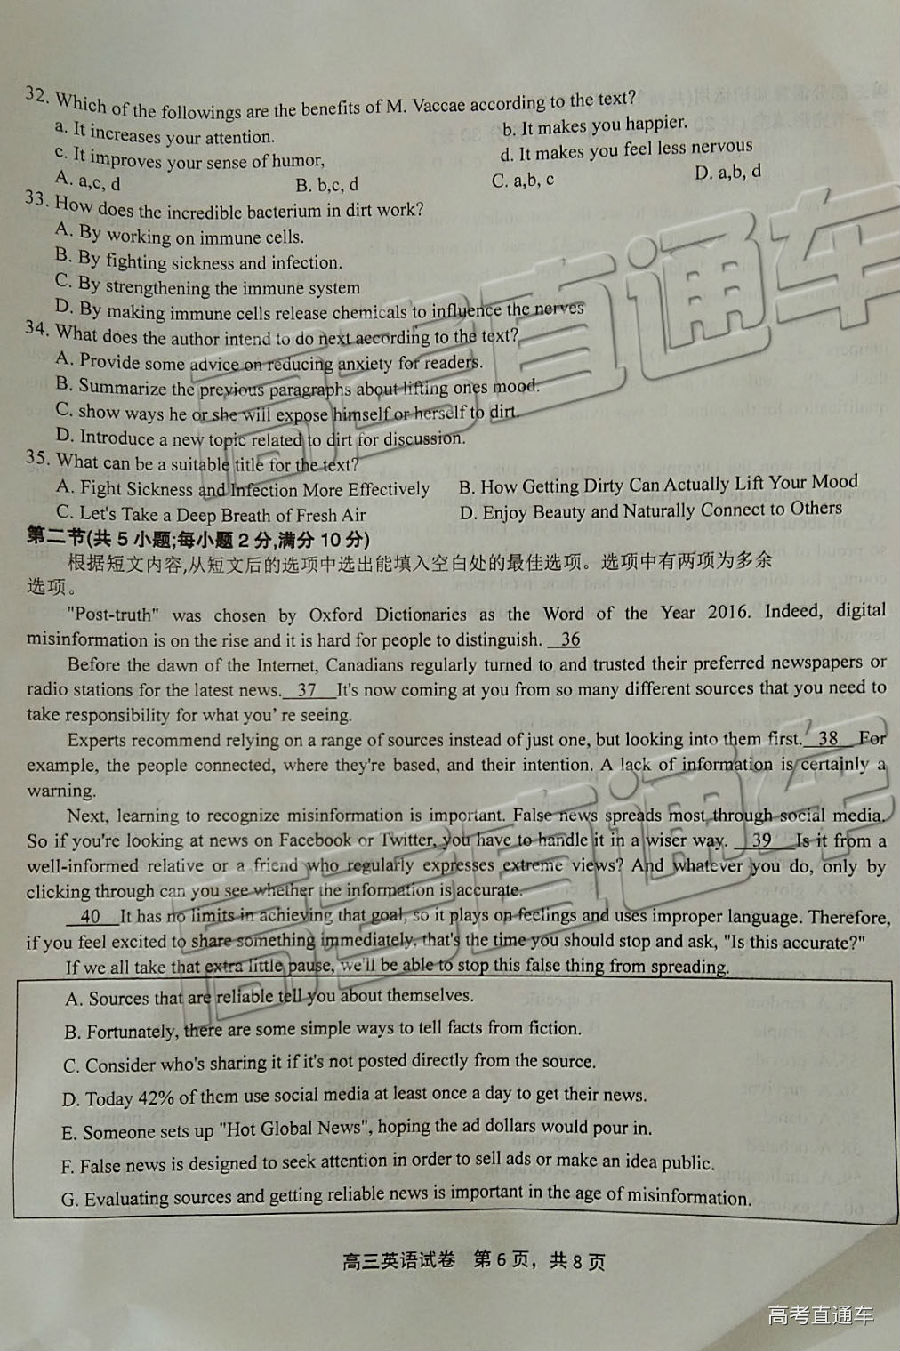 32. Which of the followings are the benefits of M. Vaccae according to the text?
a. It increases your attention. b. It makes you happier.
c. It improves your sense of humor, d. It makes you feel less nervous
A. a,c, d B. b,c, d C. a,b, c D. a,b, d
33. How does the incredible bacterium in dirt work?
A. By working on immune cells.
B. By fighting sickness and infection.
C. By strengthening the immune system
D. By making immune cells release chemicals to influence the nerves
34. What does the author intend to do next according to the text?
A. Provide some advice on reducing anxiety for readers.
B. Summarize the previous paragraphs about lifting ones mood.
C. show ways he or she will expose himself or herself to dirt.
D. Introduce a new topic related to dirt for discussion.
35. What can be a suitable title for the text?
A. Fight Sickness and Infection More Effectively B. How Getting Dirty Can Actually Lift Your Mood
C. Let's Take a Deep Breath of Fresh Air D. Enjoy Beauty and Naturally Connect to Others
第二节(共 5 小题;每小题 2 分,满分 10 分)
根据短文内容,从短文后的选项中选出能填入空白处的最佳选项。选项中有两项为多余
选项。
"Post-truth" was chosen by Oxford Dictionaries as the Word of the Year 2016. Indeed, digital
misinformation is on the rise and it is hard for people to distinguish. 36
Before the dawn of the Internet, Canadians regularly turned to and trusted their preferred newspapers or
radio stations for the latest news. 37 It's now coming at you from so many different sources that you need to
take responsibility for what you' re seeing.
Experts recommend relying on a range of sources instead of just one, but looking into them first. 38 For
example, the people connected, where they're based, and their intention. A lack of information is certainly a
warning.
Next, learning to recognize misinformation is important. False news spreads most through social media.
So if you're looking at news on Facebook or Twitter, you have to handle it in a wiser way. 39 Is it from a
well-informed relative or a friend who regularly expresses extreme views? And whatever you do, only by
clicking through can you see whether the information is accurate.
40 It has no limits in achieving that goal, so it plays on feelings and uses improper language. Therefore,
if you feel excited to share something immediately, that's the time you should stop and ask, "Is this accurate?"
If we all take that extra little pause, we'll be able to stop this false thing from spreading.
A. Sources that are reliable tell you about themselves.
B. Fortunately, there are some simple ways to tell facts from fiction.
C. Consider who's sharing it if it's not posted directly from the source.
D. Today 42% of them use social media at least once a day to get their news.
E. Someone sets up "Hot Global News", hoping the ad dollars would pour in.
F. False news is designed to seek attention in order to sell ads or make an idea public.
G. Evaluating sources and getting reliable news is important in the age of misinformation.
高三英语试卷 第 6 页，共 8 页
高考直通车
高考直通车
高考直通车